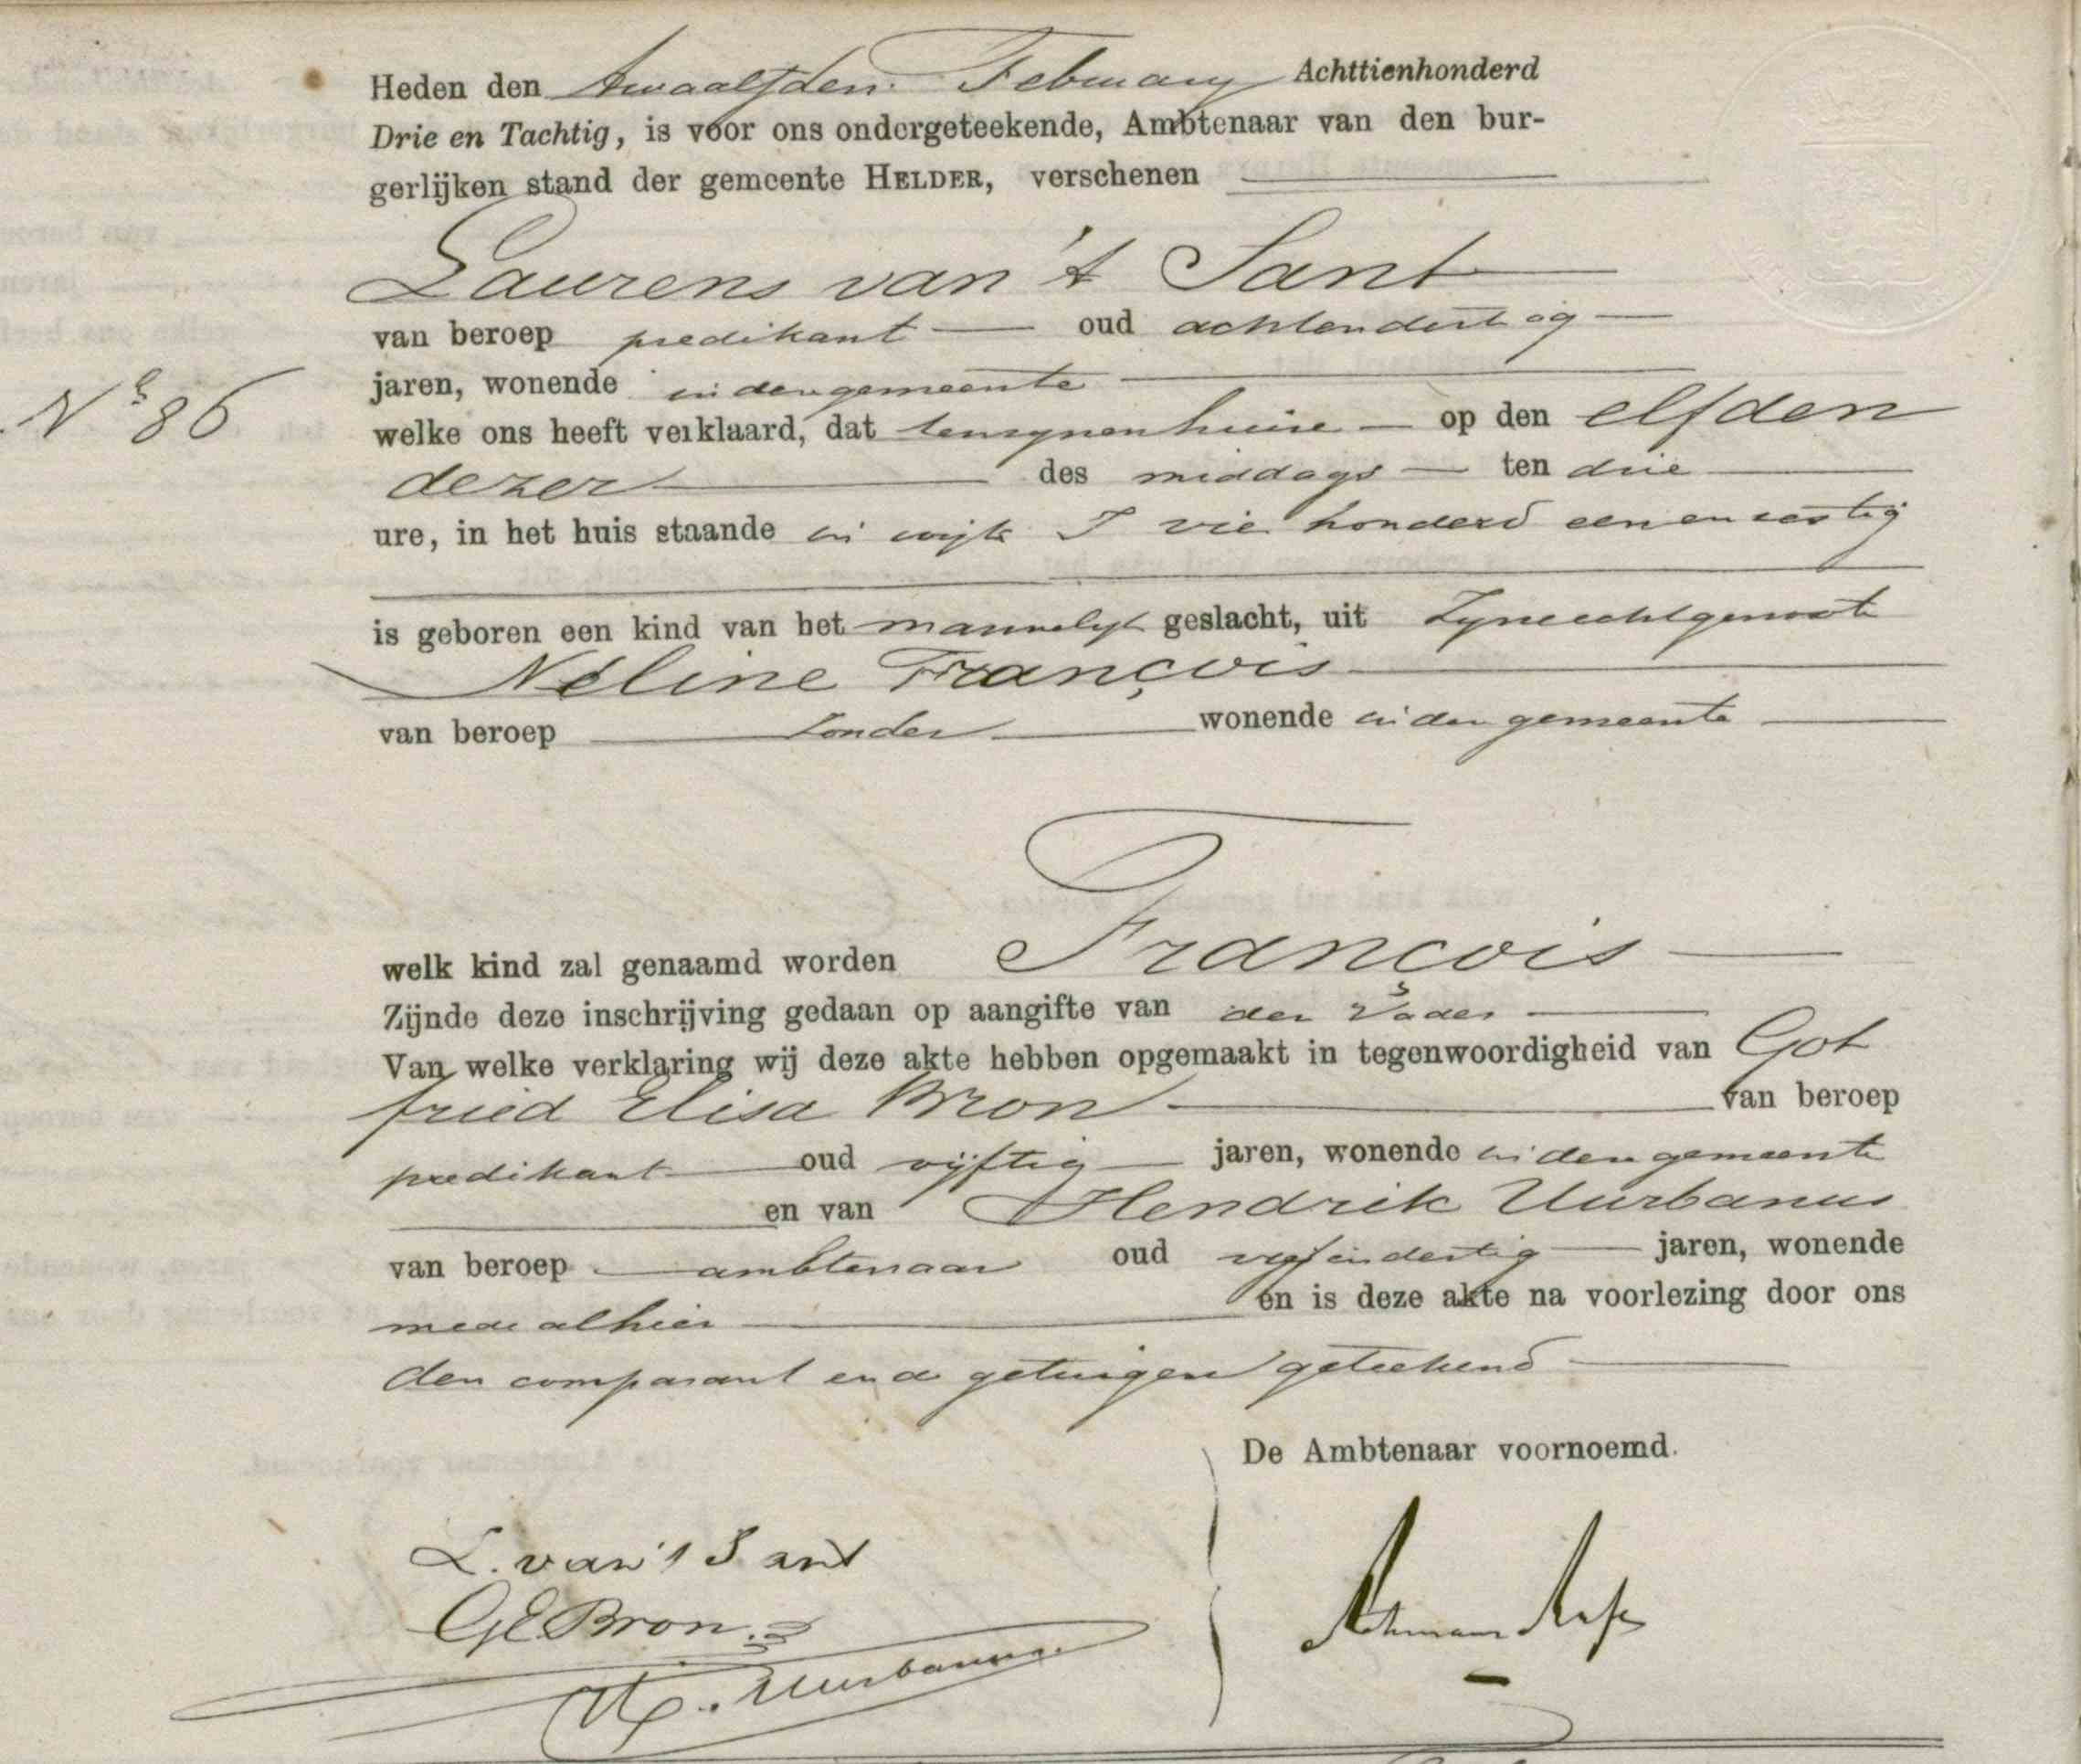 Heden den twaalfden February Achttienhonderd
Drie en Tachtig, is voor ons ondergeteekende, Ambtenaar van den bur-
gerlijken stand der gemeente HELDER, verschenen
Laurens van 't Sant
van beroep predikant oud achtendertig
jaren, wonende in deze gemeente
No 86
welke ons heeft verklaard, dat tenzynenhuise op den elfden
dezer des middags ten drie
ure, in het huis staande in wijk I vier honderd een en zestig
is geboren een kind van het mannelyk geslacht, uit Zyne echtgenoote
Néline François
van beroep Zonder wonende in deze gemeente
welk kind zal genaamd worden François
Zijnde deze inschrijving gedaan op aangifte van den Vader
Van welke verklaring wij deze akte hebben opgemaakt in tegenwoordigheid van Got
fried Elisa Bron van beroep
predikant oud vijftig jaren, wonende in deze gemeente
en van Hendrik Uurbanus
van beroep ambtenaar oud vyfendertig jaren, wonende
mede alhier en is deze akte na voorlezing door ons
den comparant en de getuigen geteekend
De Ambtenaar voornoemd.
L. van 't Sant
GEBron.
H. Uurbanus.